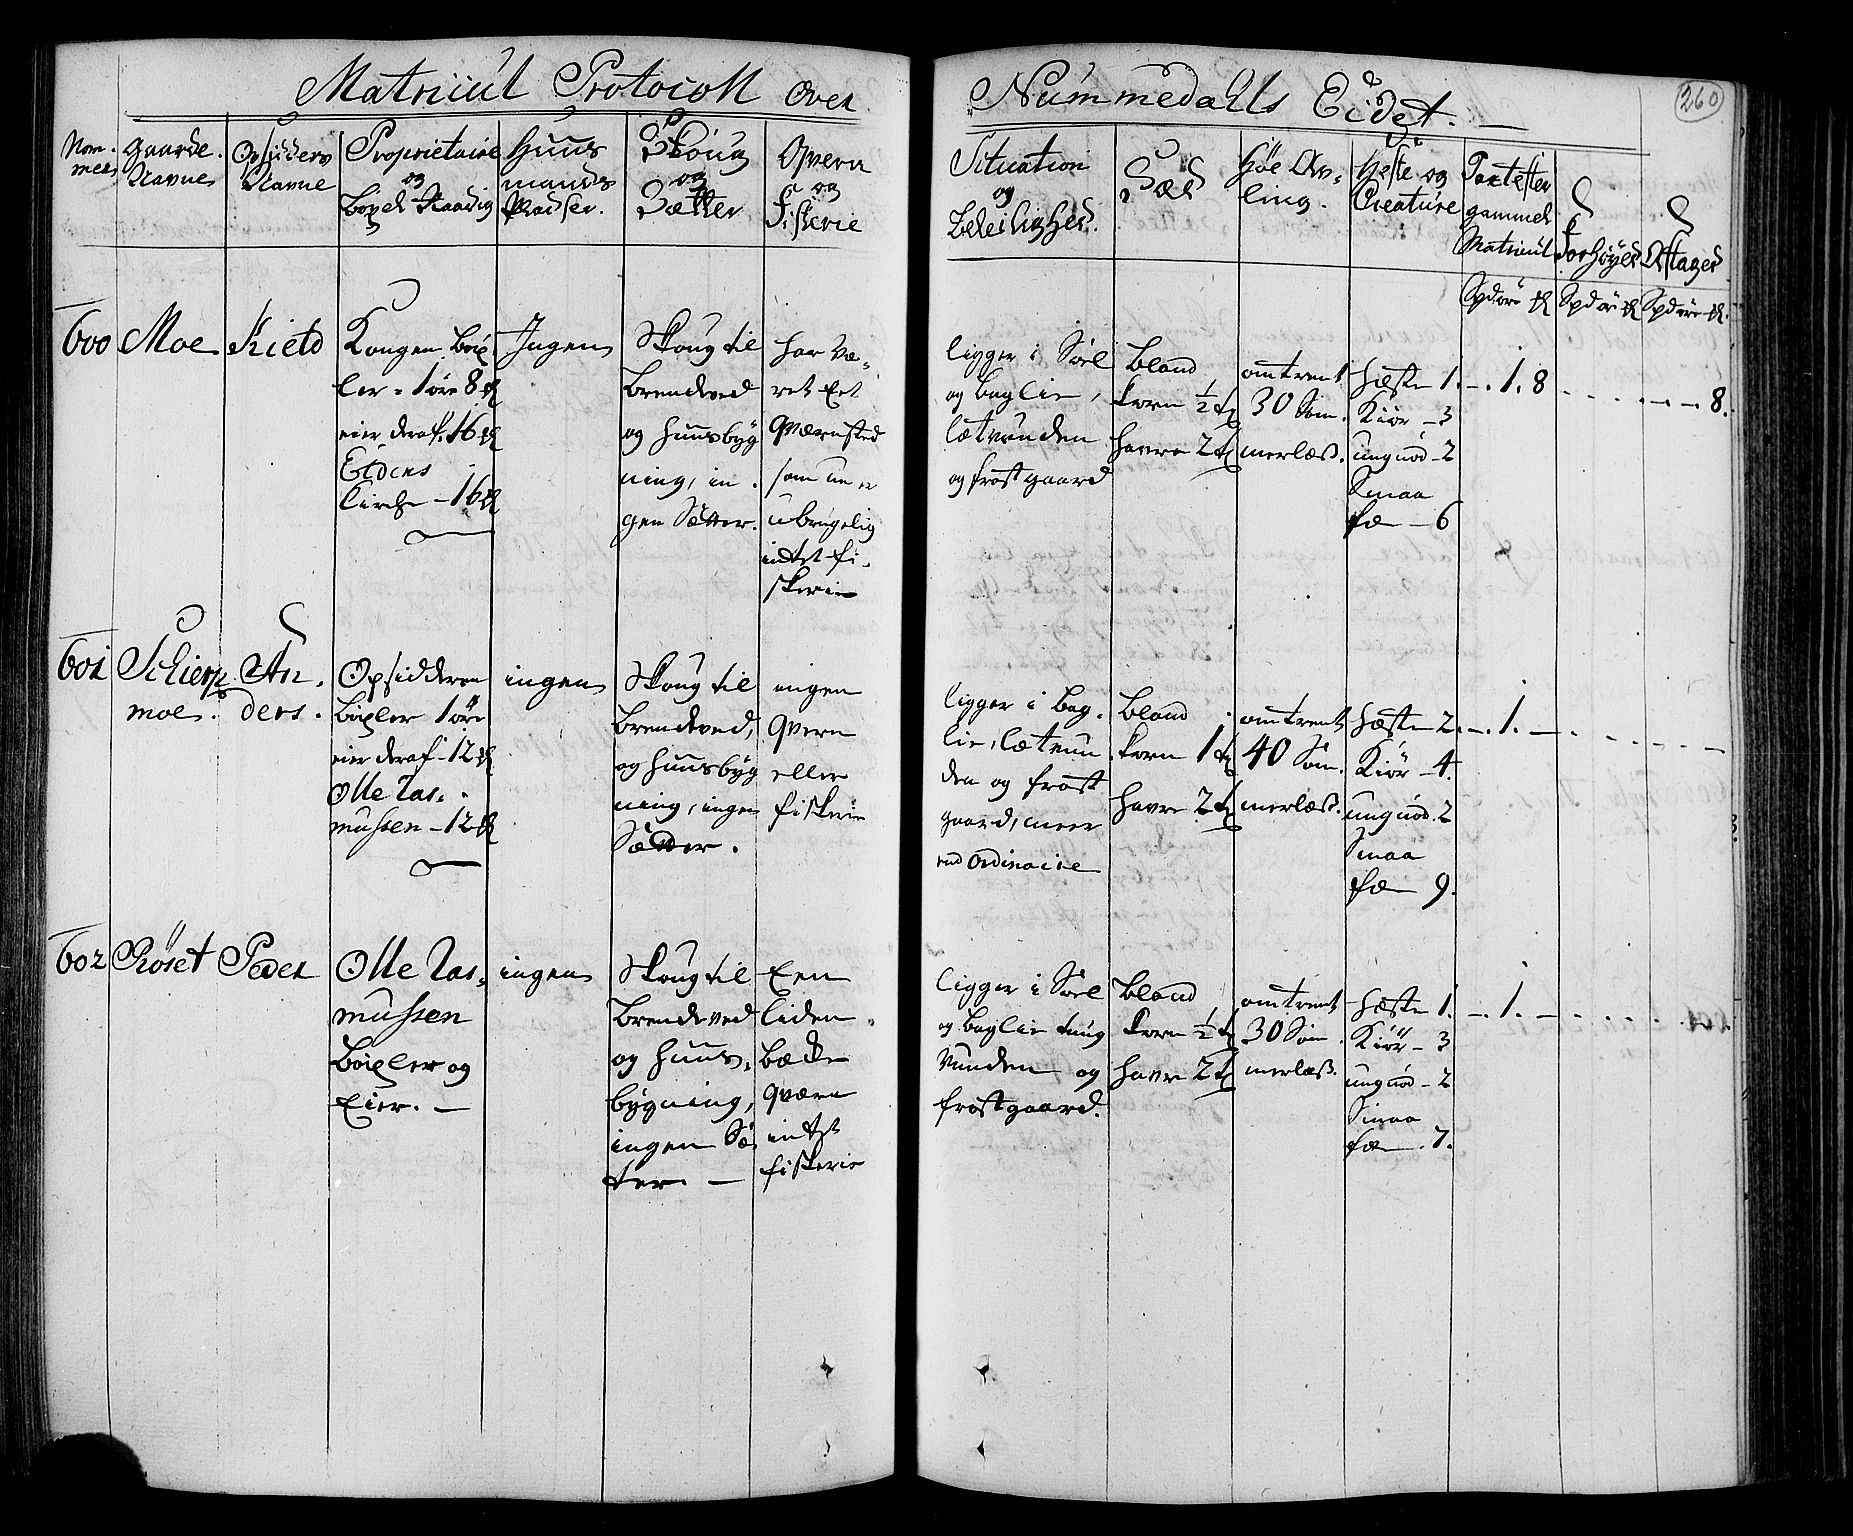 Matricul Protocoll over
Nummedahls Eidet.
260
Nom-
mer
Gaarde
Navne
Opsidders
Navne
Proprietairer
og
Bøxel Raadig
Huus
mands
Pladser.
Skoug
og
Sætter
Qvern
og
Fiskerie
Situation
og
Beleilighed.
Sæd
Høe Av-
ling.
Heste og
Creature
Taxt efter
gammel
Matricul
Forhøyed
Aftaged
Spd ort ß
Spd ort ß
Spd ort ß
600
Moe
Kield
Kongen Bøx-
ler - 1 øre 8 ß
eier deraf. 16 ß
Eidens
Kirche - 16 ß
Ingen
Skoug til
Brendeved
og Huusbÿg
ning, in-
gen Sætter.
har væ-
ret Eet
Qværnsted
som nu er
ubrugelig
intet fi-
skerie
ligger i Soel
og baglie,
lætvunden
og frost gaard
Bland
korn ½ t
havre 2 t
omtrent
30 Som-
merlæs.
Heste 1.
Kiør - 3
ungnød - 2
Smaa
fæ - 6
- . 1. 8
8.
601
Schierp
moe.
An-
ders.
Opsidderen
bøxler 1 øre
eier deraf - 12 ß
Olle Ras-
mussen - 12 ß
ingen
Skoug til
Brendeved,
og Huusbÿg
ning, ingen
Sætter.
ingen
Qvern
eller
fiskerie
ligger i bag-
lie, lætvun
den og frost
gaard, meer
end ordinaire
Bland
korn 1 t
havre 2 t
omtrent
40 Som-
merlæs.
Heste 2.
Kiør - 4.
ungnød. 2
Smaa
fæ 9.
- . 1. -
602
Røset
Peder
Olle Ras-
mussen
Bøxler og
Eier. -
ingen
Skoug til
Brendeved
og Huus-
bygning,
ingen Sæ
ter. -
Een
liden
bæcke
qværn
intet
fiskerie
ligger i Soel
og baglie tung
vunden og
frost gaard.
Bland
korn ½ t
havre 2 t
omtrent
30 Som-
merlæs.
Heste 1.
Kiør - 3
ungnød - 2
Smaa
fæ . 7.
- . 1. -